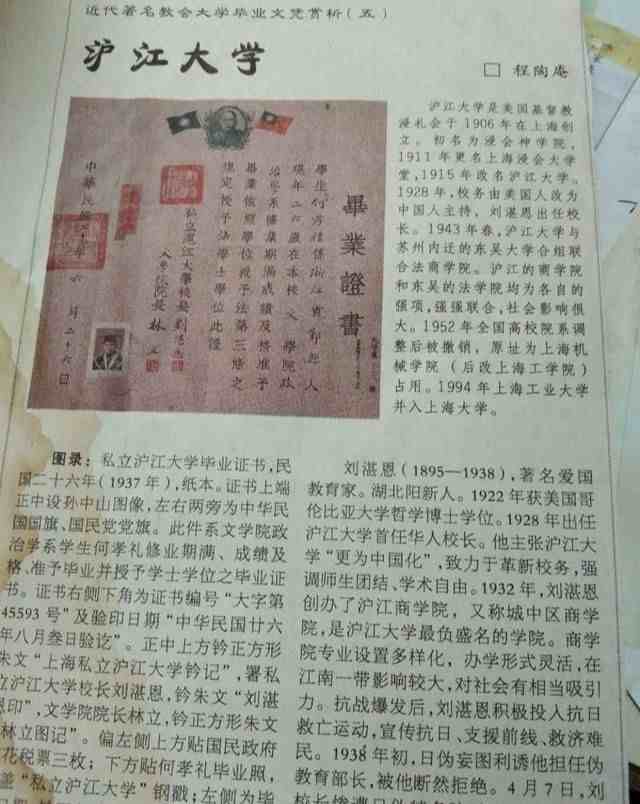 近代著名教会大学毕业文凭赏析(五)
沪江大学
□ 程陶庵
沪江大学是美国基督教
浸礼会于1906年在上海创
立。初名为浸会神学院，
1911年更名上海浸会大学
堂，1915年改名沪江大学。
1928年，校务由美国人改为
中国人主持，刘湛恩出任校
长。1943年春，沪江大学与
苏州内迁的东吴大学合组联
合法商学院。沪江的商学院
和东吴的法学院均为各自的
强项，强强联合，社会影响很
大。1952年全国高校院系调
整后被撤销，原址为上海机
械学院（后改上海工学院）
占用。1994年上海工业大学
并入上海大学。
畢業證書
學生何孝禮係浙江省
人
現年二六歲在本校文學院政
治學系修業期滿成績及格准予
畢業依照學位授予法第三條之
規定授予法學士學位此證
私立滬江大學校長劉湛恩
文學院院長林立
中華民國二十六年六月二十六日
图录：私立沪江大学毕业证书，民
国二十六年(1937年)，纸本。证书上端
正中设孙中山图像，左右两旁为中华民
国国旗、国民党党旗。此件系文学院政
治学系学生何孝礼修业期满、成绩及
格、准予毕业并授予学士学位之毕业证
书。证书右侧下角为证书编号“大字第
45593号”及验印日期“中华民国廿六
年八月叁日验讫”。正中上方钤正方形
朱文“上海私立沪江大学钤记”，署私
立沪江大学校长刘湛恩，钤朱文“刘湛
恩印”，文学院院长林立，钤正方形朱文
“林立图记”。偏左侧上方贴国民政府
花税票三枚；下方贴何孝礼毕业照，
盖“私立沪江大学”钢戳；左侧为毕
刘湛恩(1895—1938)，著名爱国
教育家。湖北阳新人。1922年获美国哥
伦比亚大学哲学博士学位。1928年出任
沪江大学首任华人校长。他主张沪江大
学“更为中国化”，致力于革新校务，强
调师生团结、学术自由。1932年，刘湛恩
创办了沪江商学院，又称城中区商学
院，是沪江大学最负盛名的学院。商学
院专业设置多样化，办学形式灵活，在
江南一带影响较大，对社会有相当吸引
力。抗战爆发后，刘湛恩积极投入抗日
救亡运动，宣传抗日、支援前线、救济难
民。1938年初，日伪妄图利诱他担任伪
教育部长，被他断然拒绝。4月7日，刘